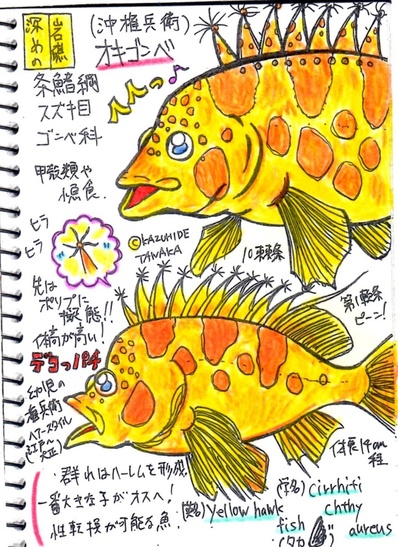 岩礁
深めの
(沖権兵衛)
オキゴンベ
条鰭綱
スズキ目
ゴンベ科
甲殻類や
ヒラ
ヒラ
©KAZUHIDE
TANAKA
10棘条
先は
ポリプに
擬態!!
体高が高い!
デコっパチ
幼児の
権兵衛
ヘアースタイル
(江戸〜
大正)
第1軟条
ピーン!
体長14cm
程
群れはハーレムを形成
一番大きな子がオスへ!
性転換が可能な魚.
(英名) Yellow hawk
fish
(学名) Cirrhiti
chthy
aureus